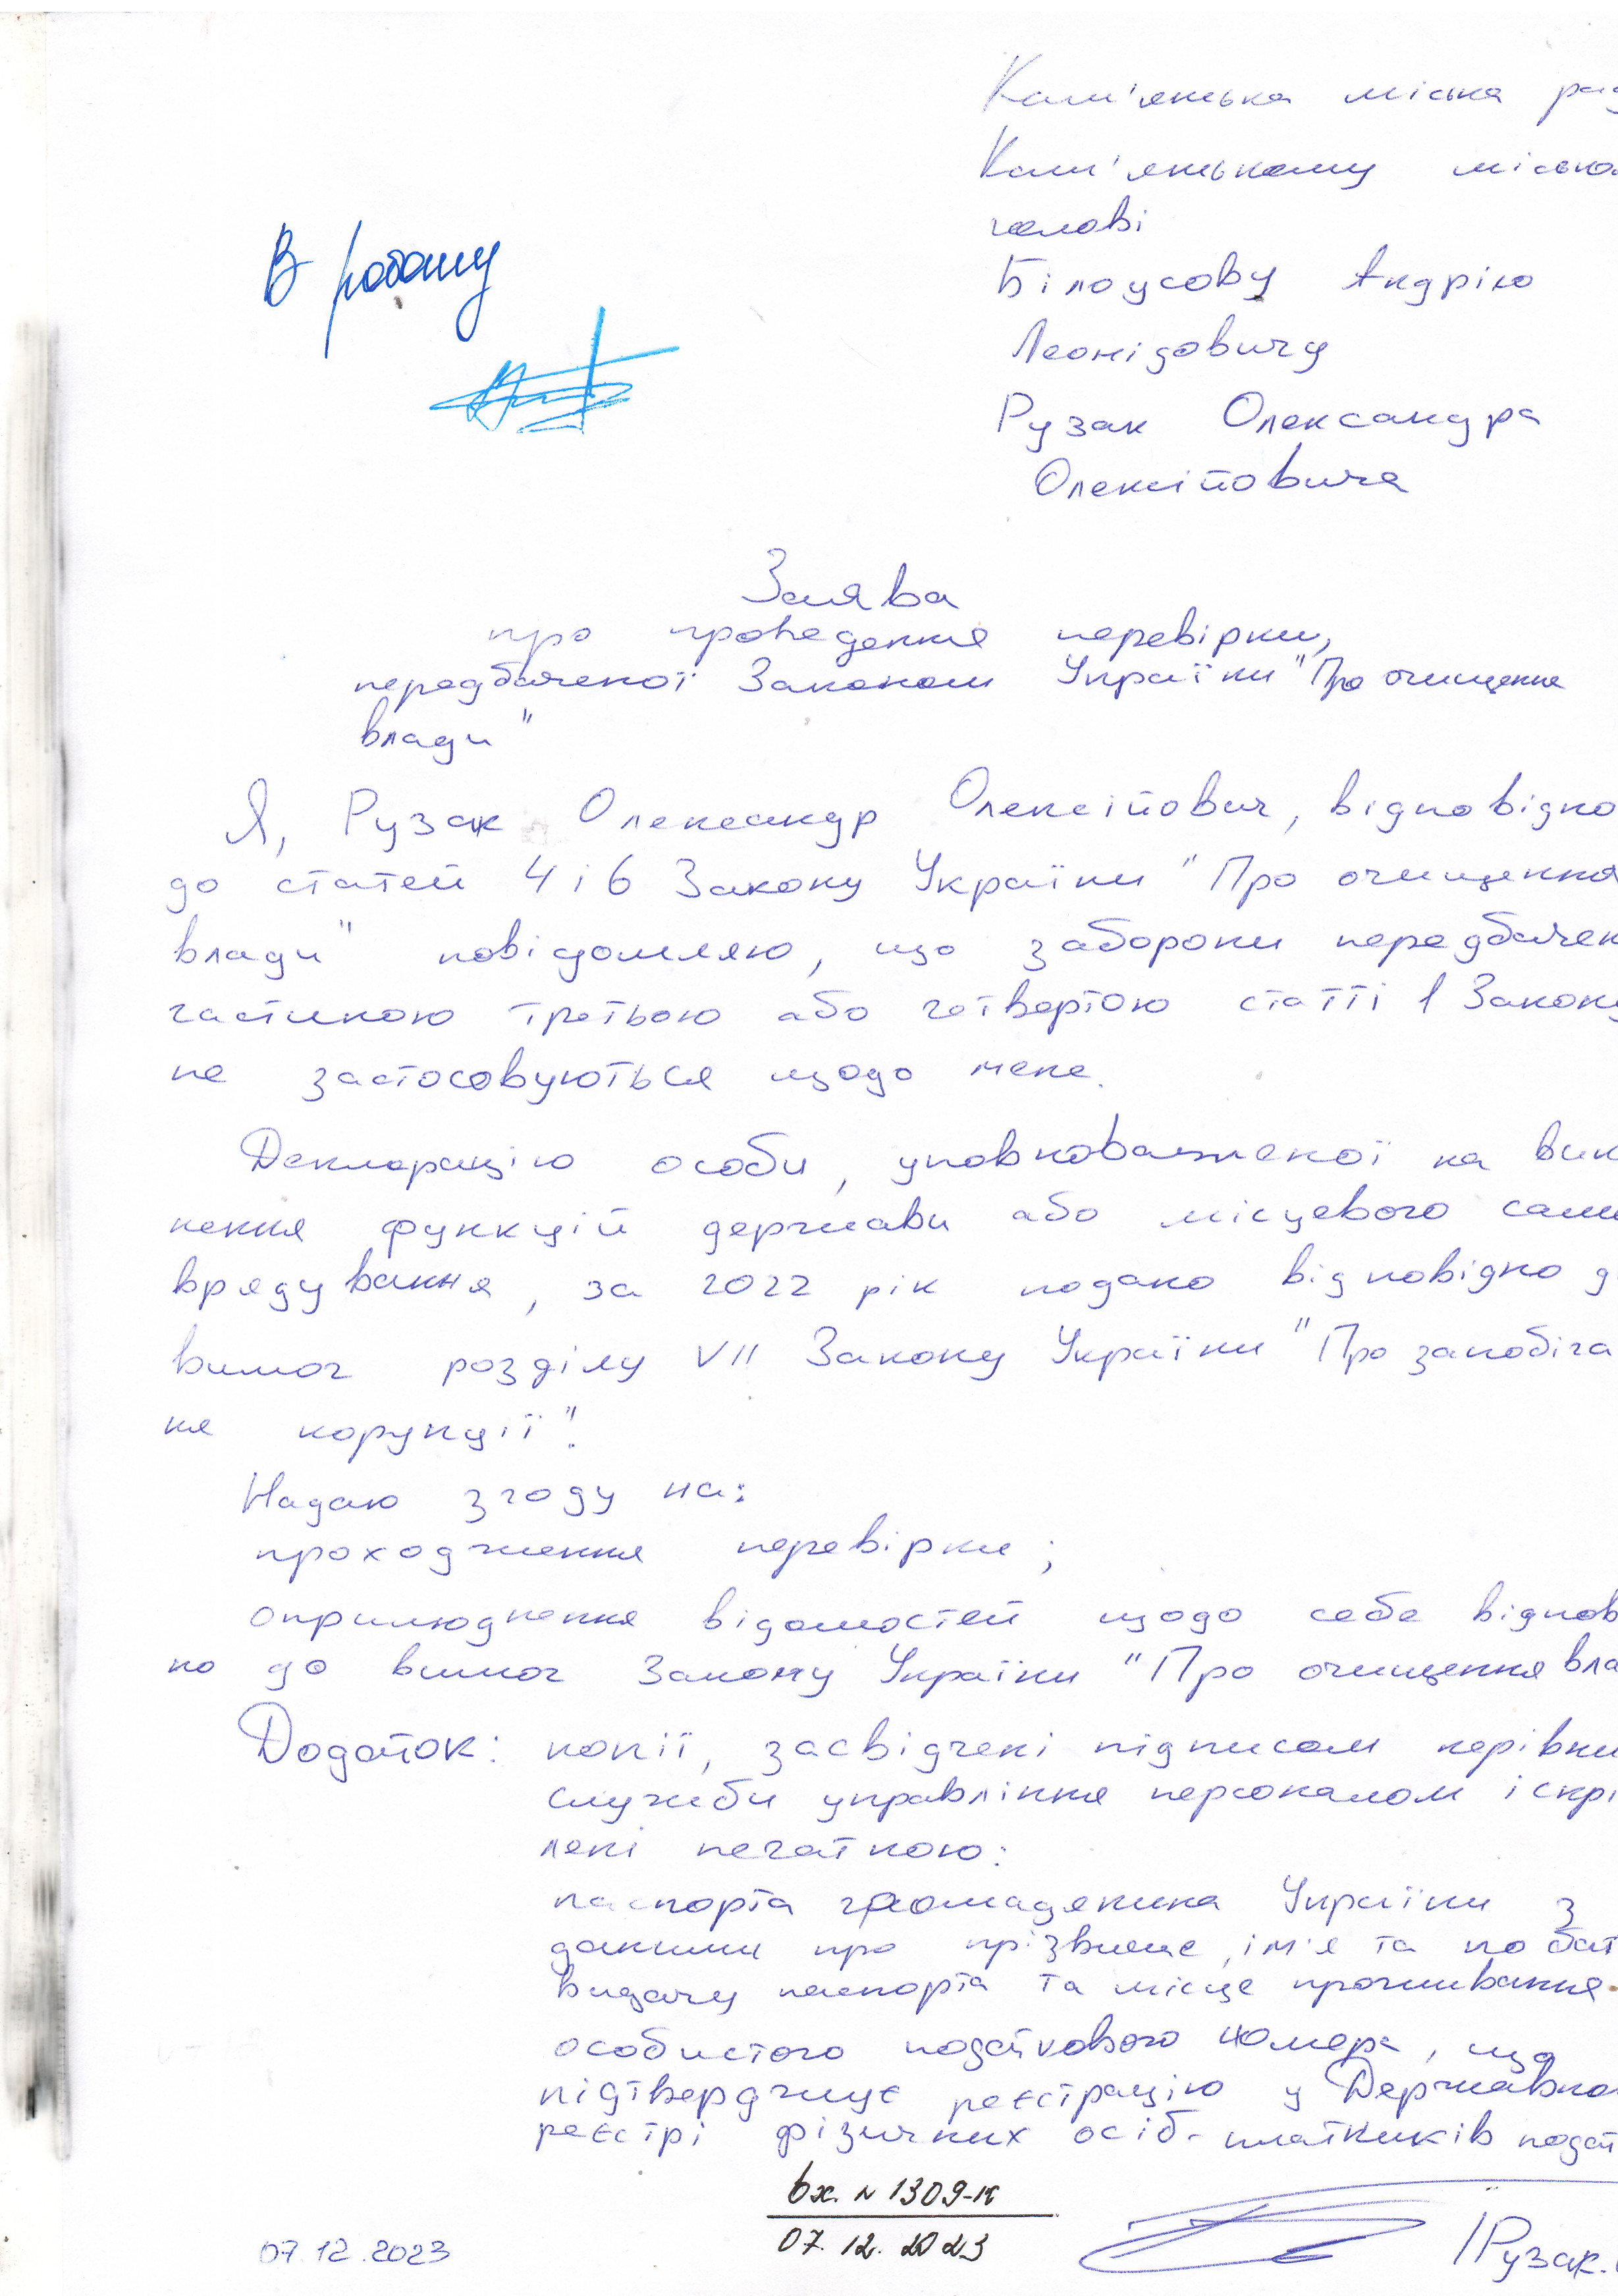 Кам'янська міська рад
Кам'янському місько
голові
Білоусову Андрію
Леонідовичу
Рузак Олександра
Олексійовича
В роботу
Заява
про проведення перевірки,
передбаченої Законом України "Про очищення
влади"
Я, Рузак Олександр Олексійович, відповідно
до статей 4 і 6 Закону України "Про очищення
влади" повідомляю, що заборони передбачен
частиною третьою або четвертою статті 1 Закону
не застосовуються щодо мене.
Декларацію особи, уповноваженої на вик
нення функцій держави або місцевого само
врядування, за 2022 рік подано відповідно д
вимог розділу VII Закону України "Про запобіга
ня корупції".
Надаю згоду на:
проходження перевірки;
оприлюднення відомостей щодо себе відпов
но до вимог Закону України "Про очищення вла
Додаток: копії, засвідчені підписом керівни
служби управління персоналом і скрі
лені печаткою:
паспорта громадянина України з
даними про прізвище, ім'я та по бат
видачу паспорта та місце проживання
особистого податкового номера, що
підтверджує реєстрацію у Державно
реєстрі фізичних осіб-платників подат
вх. № 1309-к
07.12.2023
07.12.2023
/Рузак.